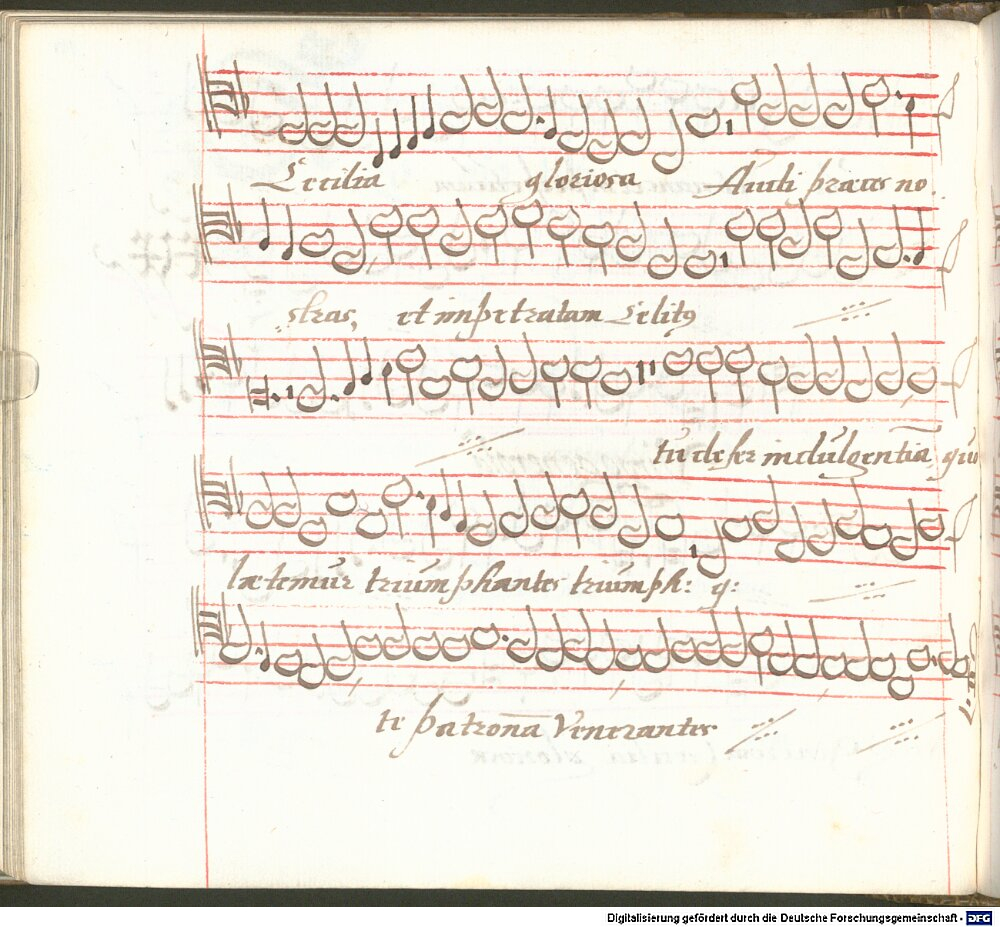 Cecilia gloriosa Audi præces no.
stras, et impetratam Celitꝰ
tu defer indulgentiā quu
lætemur triumphantes triumph: q:
te patronā Venerantes
Digitalisierung gefördert durch die Deutsche Forschungsgemeinschaft - DFG